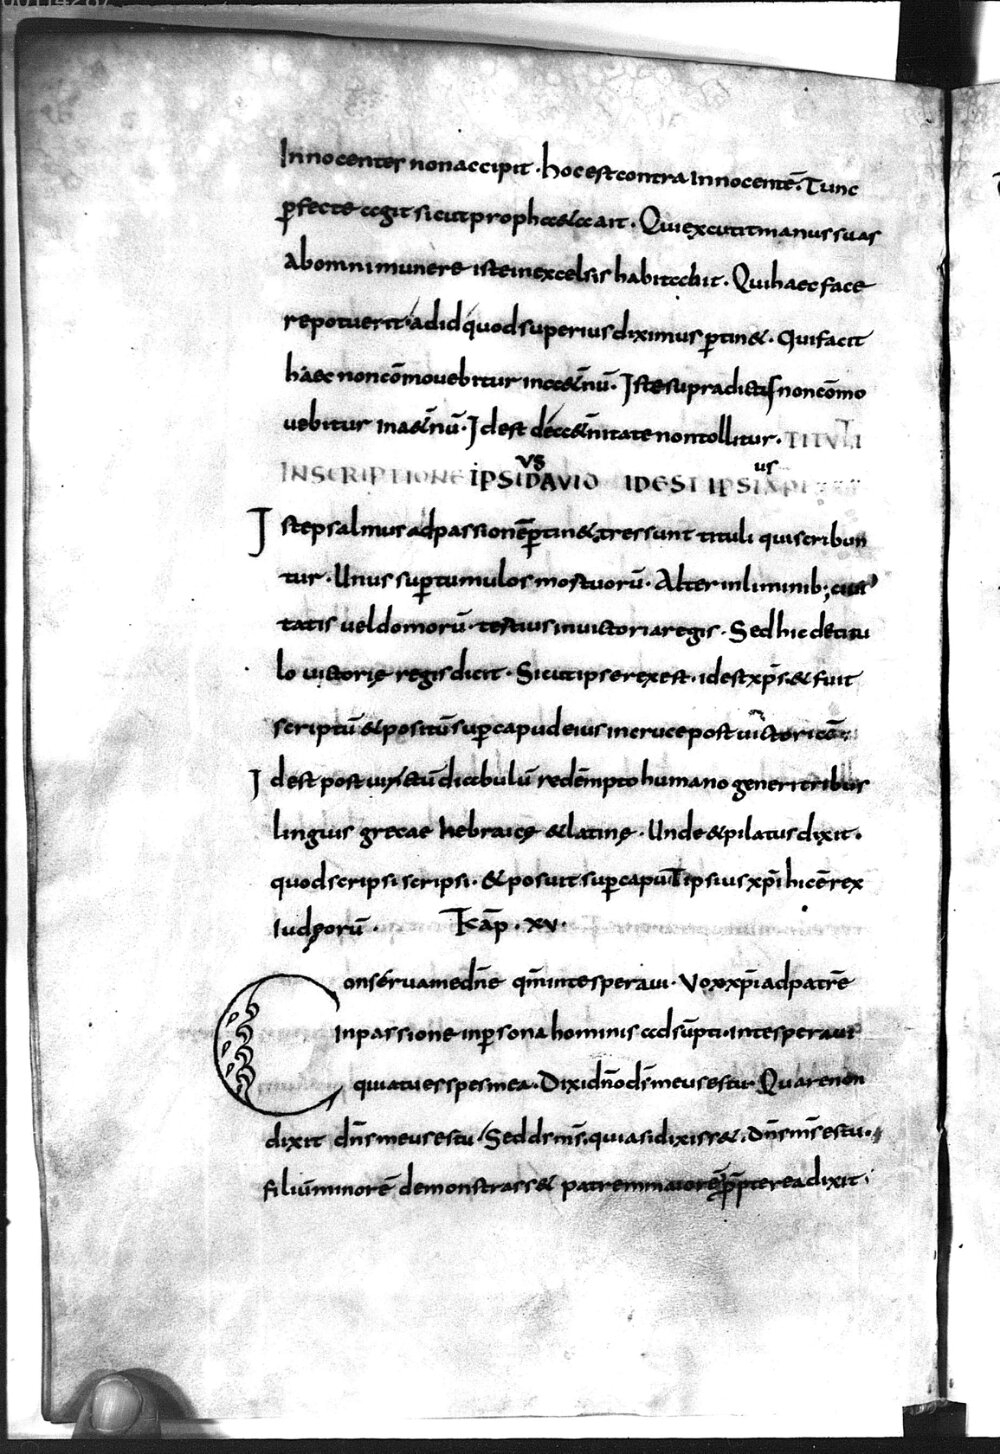 Innocenter non accipit · hoc est contra Innocentē · Tunc
ꝑfecte agit sicut propheta ait · Qui excutit manus suas
ab omni munere iste in excelsis habitabit · Qui haec face
re potuerit ad id quod superius diximus ꝑtin& · Qui facit
haec non cōmovebitur in a&ernū · Iste supradictus non cōmo
vebitur in a&ernū · Id est de a&ernitate non tollitur · TITULI
INSCRIPTIONE IPSI DAVID IDEST IPSI XPI
us us
Iste psalmus ad passionē ꝑtin& tres sunt tituli qui scribun
tur · Unus suꝑ tumulos mortuorū · Alter in liminib; civi
tatis vel domorū · tertius in victoria regis · Sed hic de titu
lo victorię regis dicit · Sicut ipse rex est · id est xp̄s · & fuit
scriptū & positū suꝑ caput eius in cruce post victoriā
Id est post victū diabulū redēmpto humano generi tribus
linguis grecae hebraicę & latinę · Unde & pilatus dixit ·
quod scripsi scripsi · & posuit suꝑ caput ipsius xp̄i hic ē rex
Iudęorū · Kāp · XV ·
Conserva me dn̄e qm̄ in te speravi · Vox xp̄i ad patrē
In passione in ꝑsona hominis adsūpti · in te speravi
quia tu es spes mea · Dixi dn̄o ds̄ meus es tu · Quare non
dixit dn̄s meus es tu / Sed ds ms̄ · quia si dixiss& · dn̄s ms̄ es tu ·
filiū minorē demonstrass& patrem maiorē ꝓpterea dixit ·